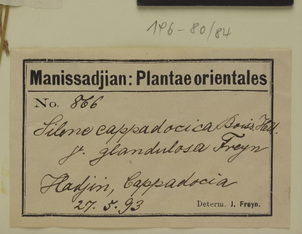 196-80/84
Manissadjian: Plantae orientales
No. 866
Silene cappadocica Boiss. Held.
γ. glandulosa Freyn
Hadjin, Cappadocia
27. 5. 93
Determ. J. Freyn.